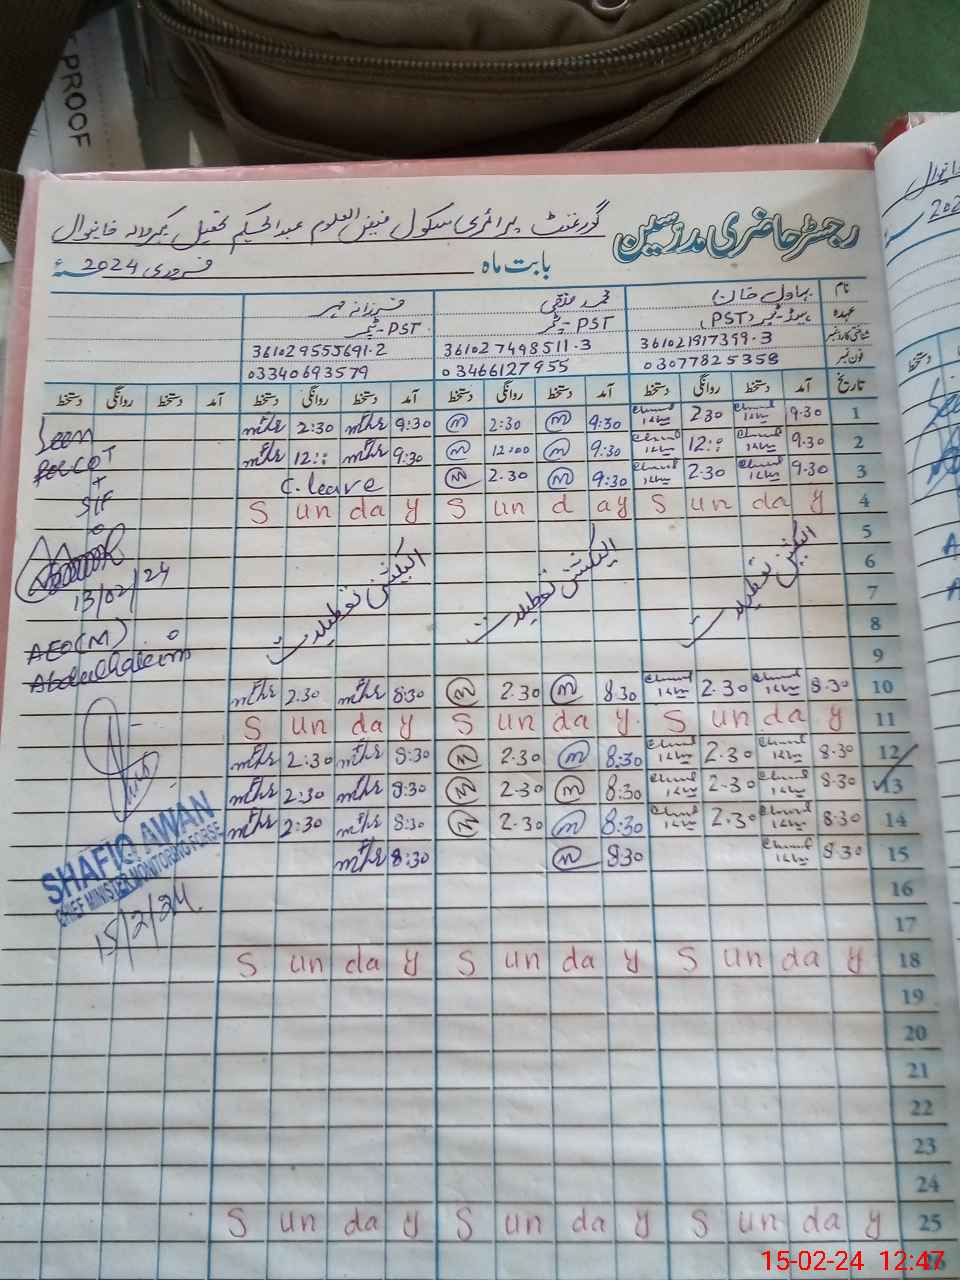 PROOF
رجسٹر حاضری مدرسین گورنمنٹ پرائمری سکول فیض العلوم عبدالحکیم تحصیل کبیروالہ خانیوال
بابت ماہ فروری 2024ء
نام بہاول خان محمد صدیقی فرزانہ مہر
عہدہ ہیڈ-ٹیچر (PST) PST-ٹیچر PST-ٹیچر
شناختی کارڈ نمبر 361021917399.3 361027498511.3 361029555691.2
فون نمبر 03077825358 03466127955 03340693579
تاریخ آمد دستخط روانگی دستخط آمد دستخط روانگی دستخط آمد دستخط روانگی دستخط آمد دستخط روانگی دستخط
1 9.30 2.30 9:30 2:30 9:30 2:30
2 9.30 12:: 9:30 12:00 9:30 12::
3 9.30 2.30 9:30 2.30 C.leave
4 S un da y S un d ay S un da y
5
6 الیکشن تعطیلات الیکشن تعطیلات الیکشن تعطیلات
7
8
9
10 8.30 2.30 8.30 2.30 8:30 2.30
11 S un da y S un da y S un da y
12 8.30 2.30 8:30 2.30 8:30 2:30
13 8.30 2.30 8:30 2.30 8:30 2:30
14 8.30 2.30 8:30 2.30 8:30 2:30
15 8.30 8.30 8:30
16
17
18 S un da y S un da y S un da y
19
20
21
22
23
24
25 S un da y S un da y S un da y
26
Seen
S/F
13/02/24
AEO(M)
Abdulhakim
SHAFIQ AWAN
CHIEF MINISTER MONITORING FORSE
15/2/24
دستخط
15-02-24 12:47